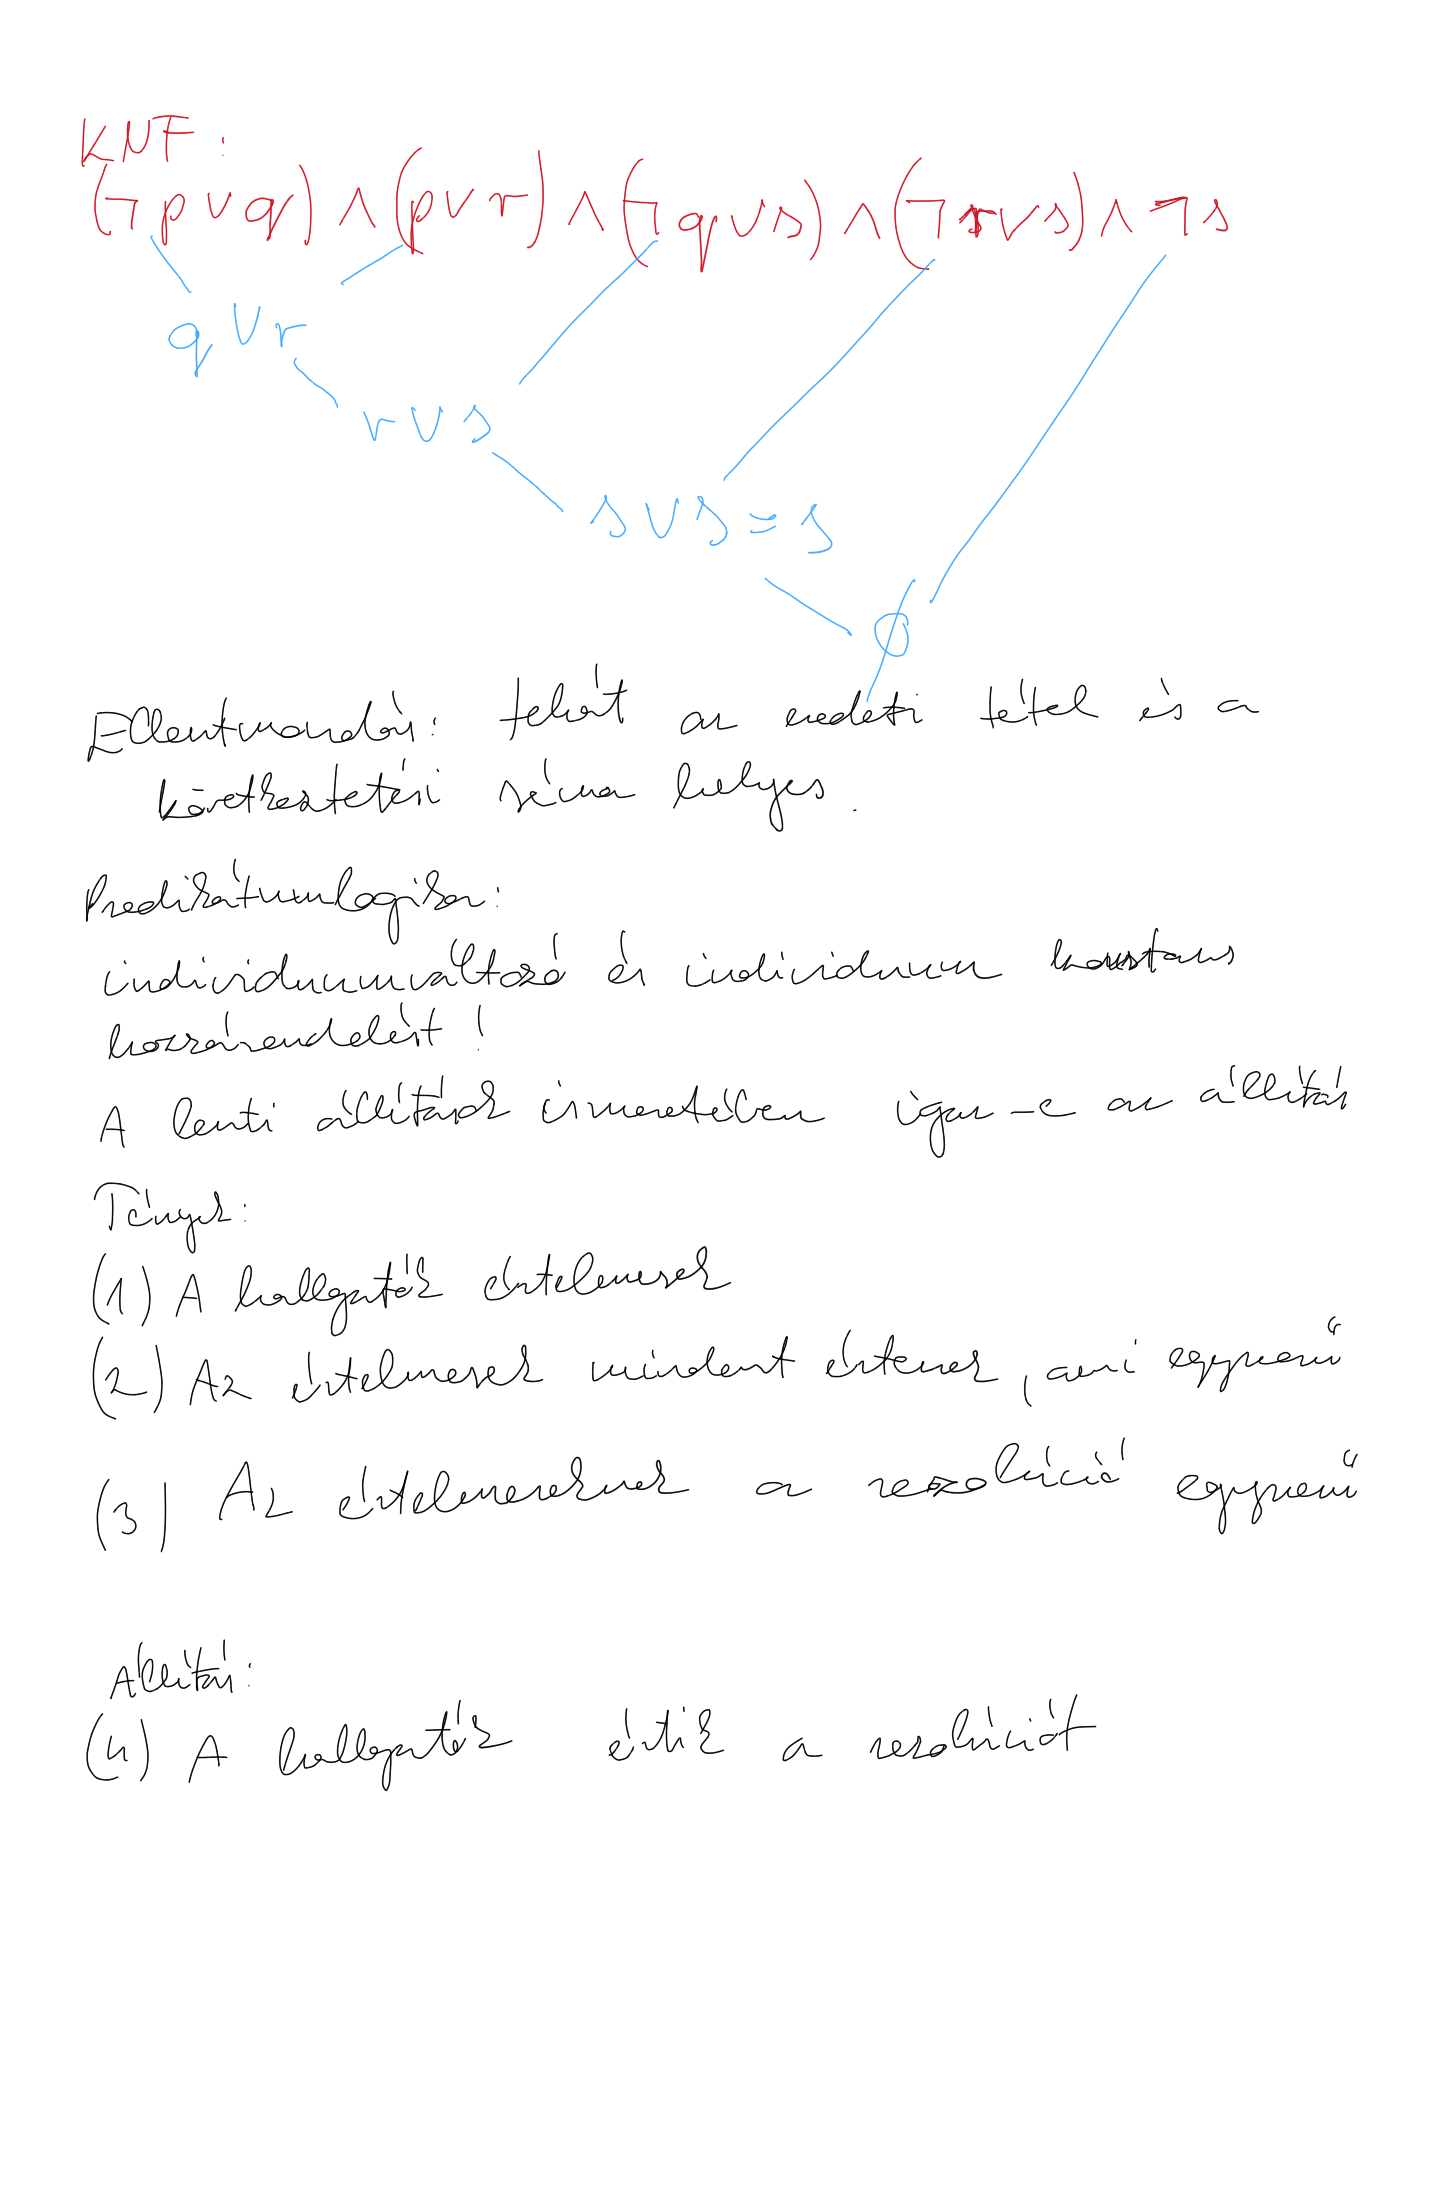 KNF:
(¬p∨q) ∧ (p∨r) ∧ (¬q∨s) ∧ (¬r∨s) ∧ ¬s
q∨r
r∨s
s∨s=s
∅
Ellentmondás: tehát az eredeti tétel és a
következtetési séma helyes.
Predikátumlogika:
individuumváltozó és individuum konstans
hozzárendelést!
A lenti állítások ismeretében igaz-e az állítás
Tények:
(1) A hallgatók értelmesek
(2) Az értelmesek mindent értenek, ami egyszerű
(3) Az értelmeseknek a rezolúció egyszerű
Állítás:
(4) A hallgatók értik a rezolúciót